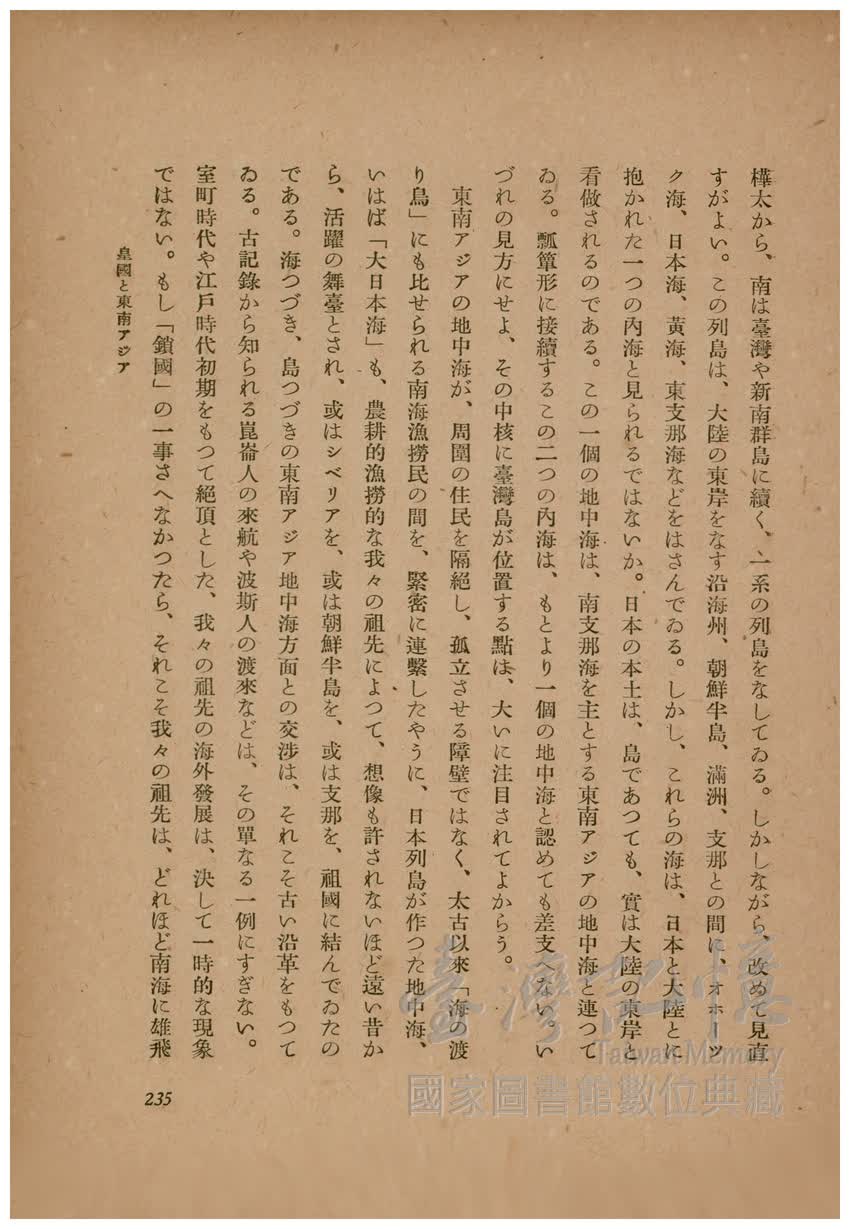 樺太から、南は臺灣や新南群島に續く、一系の列島をなしてゐる。しかしながら、改めて見直
すがよい。この列島は、大陸の東岸をなす沿海州、朝鮮半島、滿洲、支那との間に、オホーツ
ク海、日本海、黃海、東支那海などをはさんでゐる。しかし、これらの海は、日本と大陸とに
抱かれた一つの內海と見られるではないか。日本の本土は、島であつても、實は大陸の東岸と
看做されるのである。この一個の地中海は、南支那海を主とする東南アジアの地中海と連つて
ゐる。瓢簞形に接續するこの二つの內海は、もとより一個の地中海と認めても差支へない。い
づれの見方にせよ、その中核に臺灣島が位置する點は、大いに注目されてよからう。
東南アジアの地中海が、周圍の住民を隔絕し、孤立させる障壁ではなく、太古以來「海の渡
り鳥」にも比せられる南海漁撈民の間を、緊密に連繫したやうに、日本列島が作つた地中海、
いはば「大日本海」も、農耕的漁撈的な我々の祖先によつて、想像も許されないほど遠い昔か
ら、活躍の舞臺とされ、或はシベリアを、或は朝鮮半島を、或は支那を、祖國に結んでゐたの
である。海つづき、島つづきの東南アジア地中海方面との交涉は、それこそ古い沿革をもつて
ゐる。古記錄から知られる崑崙人の來航や波斯人の渡來などは、その單なる一例にすぎない。
室町時代や江戶時代初期をもつて絕頂とした、我々の祖先の海外發展は、決して一時的な現象
ではない。もし「鎖國」の一事さへなかつたら、それこそ我々の祖先は、どれほど南海に雄飛
皇國と東南アジア
235
臺灣記憶
Taiwan Memory
國家圖書館數位典藏